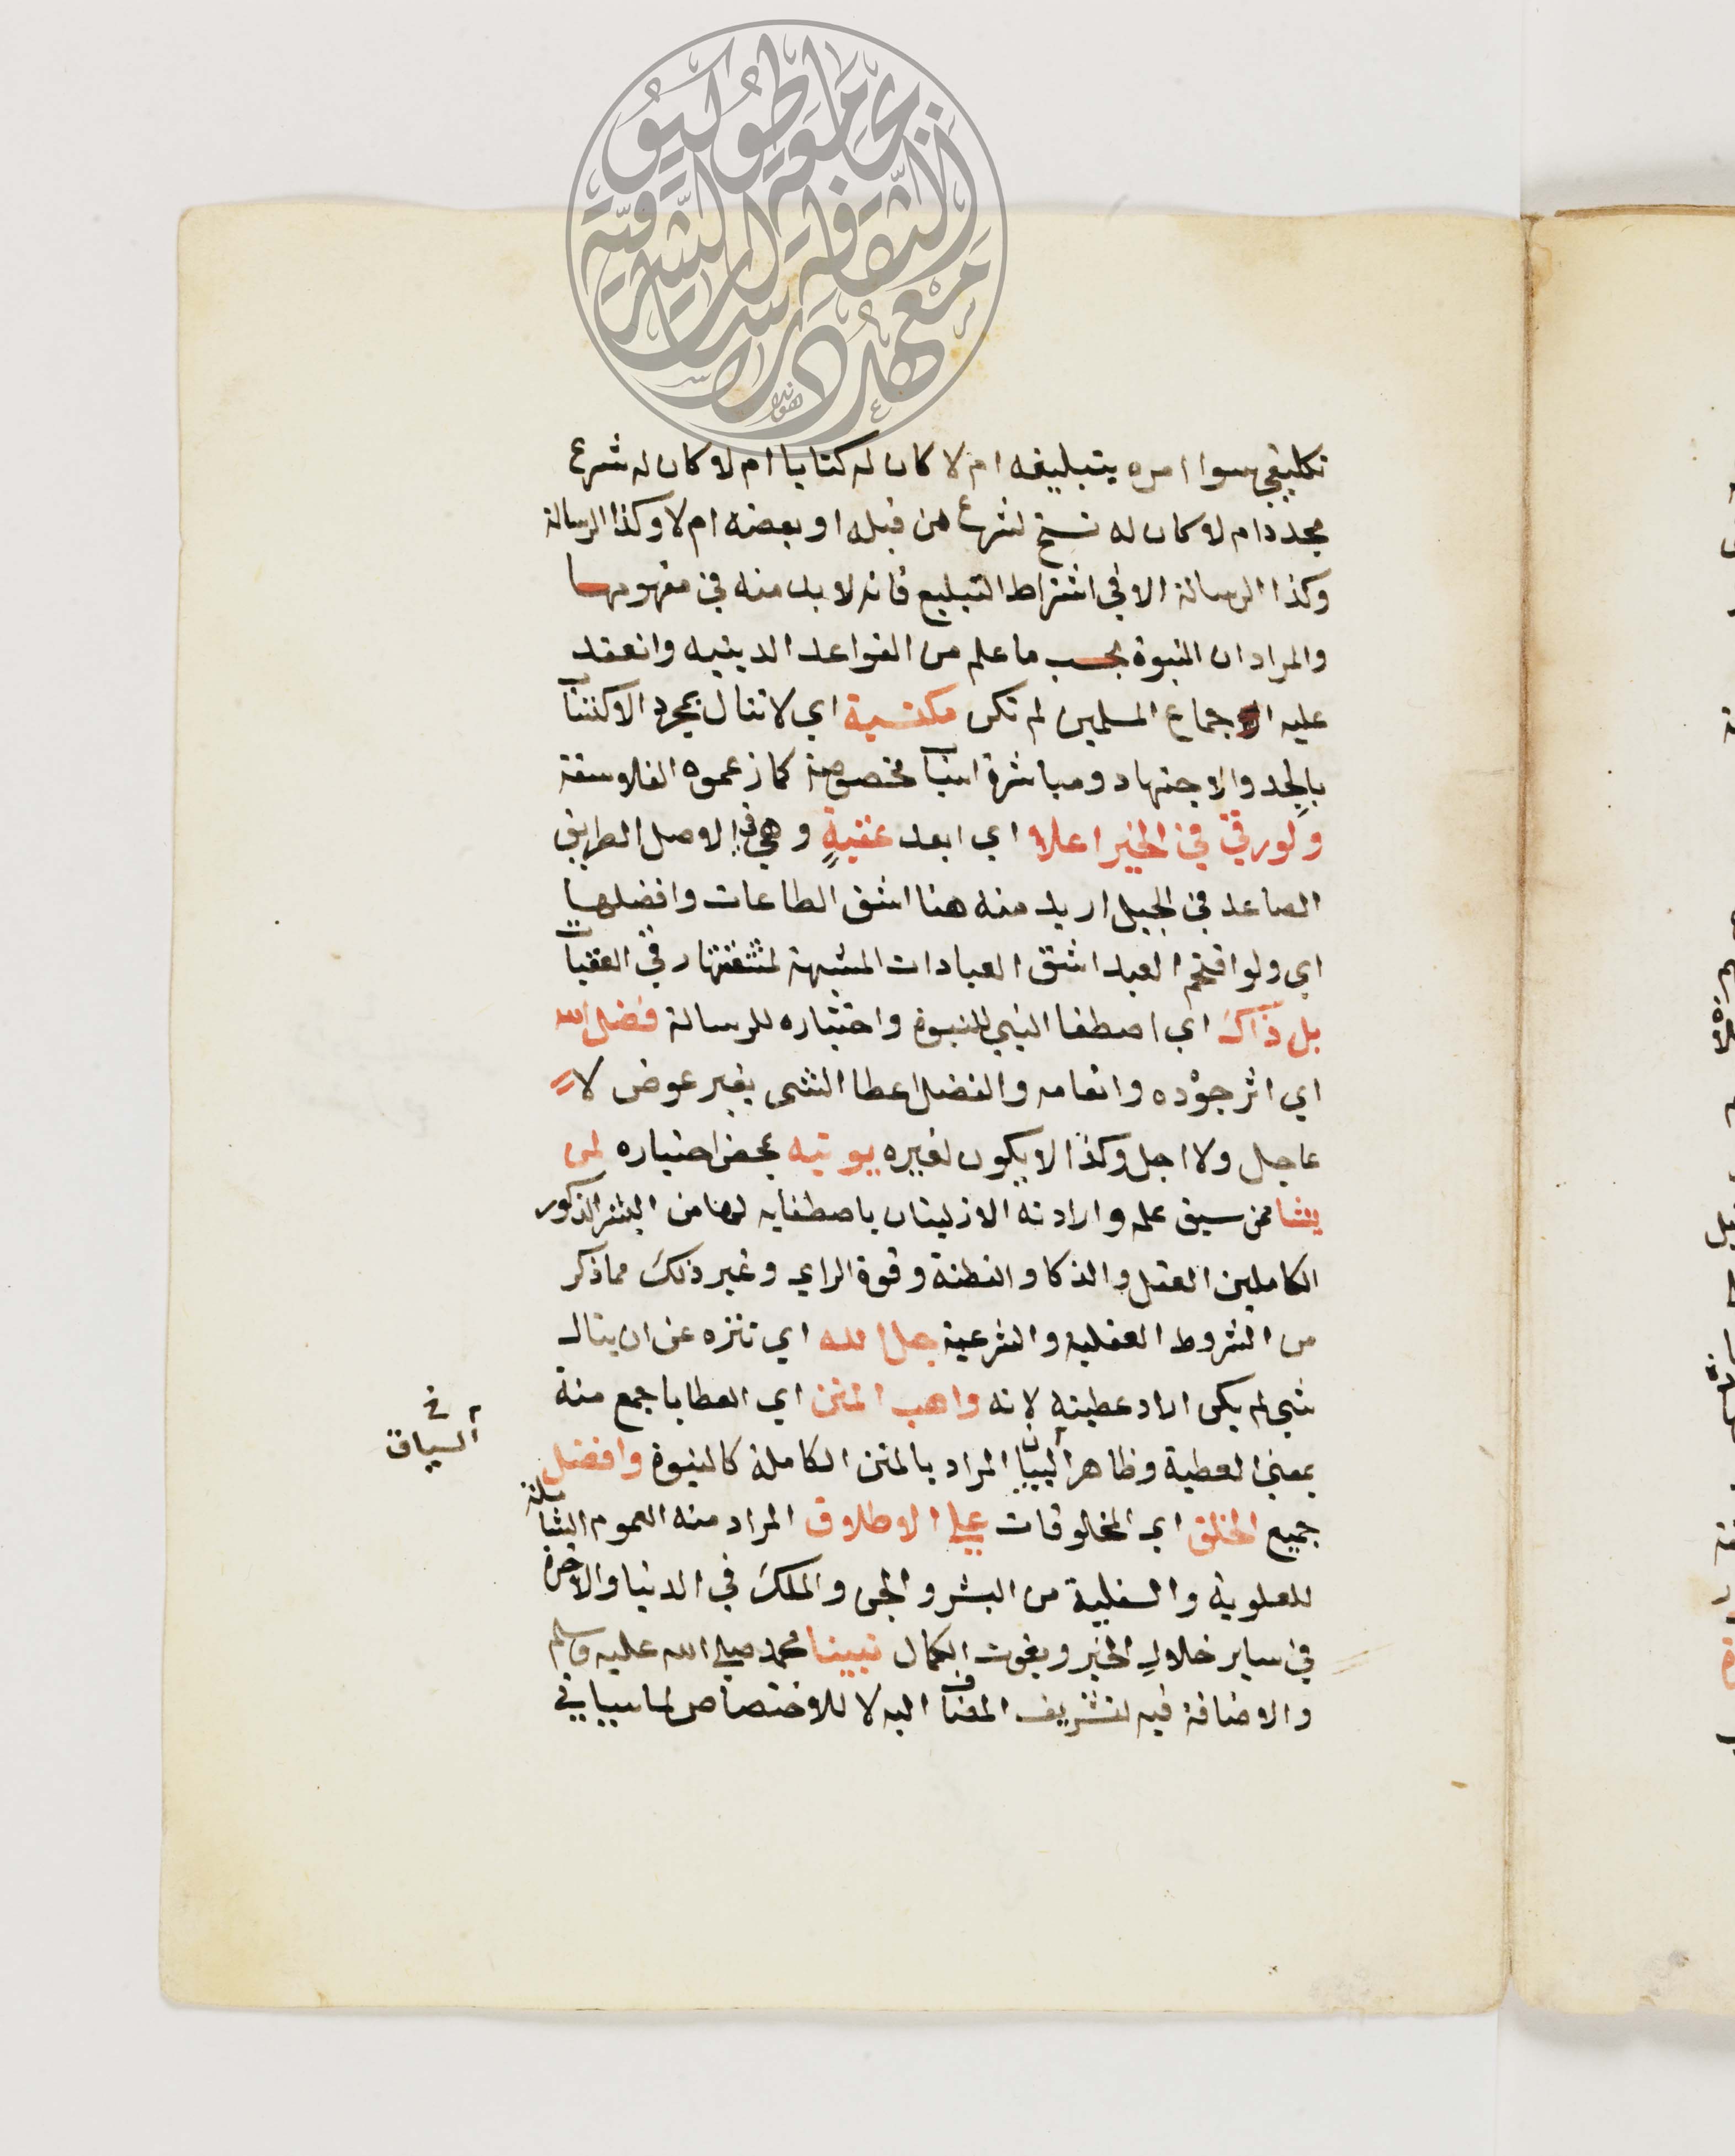 تكليفي سوا امره بتبليغه ام لا كان له كتابا ام لا كان له شرع
مجددام لا كان له نسخ لشرع من قبله او بعضه ام لا وكذا الرسالة
وكذا الرسالة الا في اشتراط التبليغ فانه لا بد منه في مفهومها
والمراد ان النبوة بحسب ما علم من القواعد الدينيه وانعقد
عليه اجماع المسلمين لم تكن مكتسبة اي لا تنال بمجرد الاكتسا
بالجد والاجتهاد ومباشرة اسباب مخصوصة كما زعموه الفلاسفة
ولو رقي في الخير اعلا اي ابعد عقبة وهي في الاصل الطريق
الصاعد في الجبل اريد منه هنا اشق الطاعات وافضلها
اي ولو اقتحم العبد اشق العبادات المشبهة لمشقتها رقي العقبات
بل ذاك اي اصطفا النبي للنبوة واختياره للرسالة فضل الله
اي اثر جوده وانعامه والفضل اعطا الشي بغير عوض لا
عاجل ولا اجل وكذا لا يكون لغيره يوتيه بمحض اختياره لمن
يشا ممن سبق علمه وارادته الازليتان باصطفايه لها من البشر الذكور
الكاملين العقل والذكا والفطنة وقوة الراي وغير ذلك مما ذكر
من الشروط العقلية والشرعية جل الله اي تنزه عن ان ينال
شي لم يكن اراد عطيته لانه واهب المنن اي العطايا جمع منة
بمعني العطية وظاهر البيان المراد بالمنن الكاملة كالنبوة وافضل
جميع الخلق اي المخلوقات علي الاطلاق المراد منه العموم الشاملة
للعلوية والسفلية من البشر والجن والملك في الدنيا والاخرة
في ساير خلال الخير ونعوت الكمال نبينا محمد صلي الله عليه وسلم
والاضافة فيه لتشريف المضاف اليه لا للاختصاص لما سياتي
في
السياق
معهد الثقافة والدراسات الشرقية
جامعة طوكيو